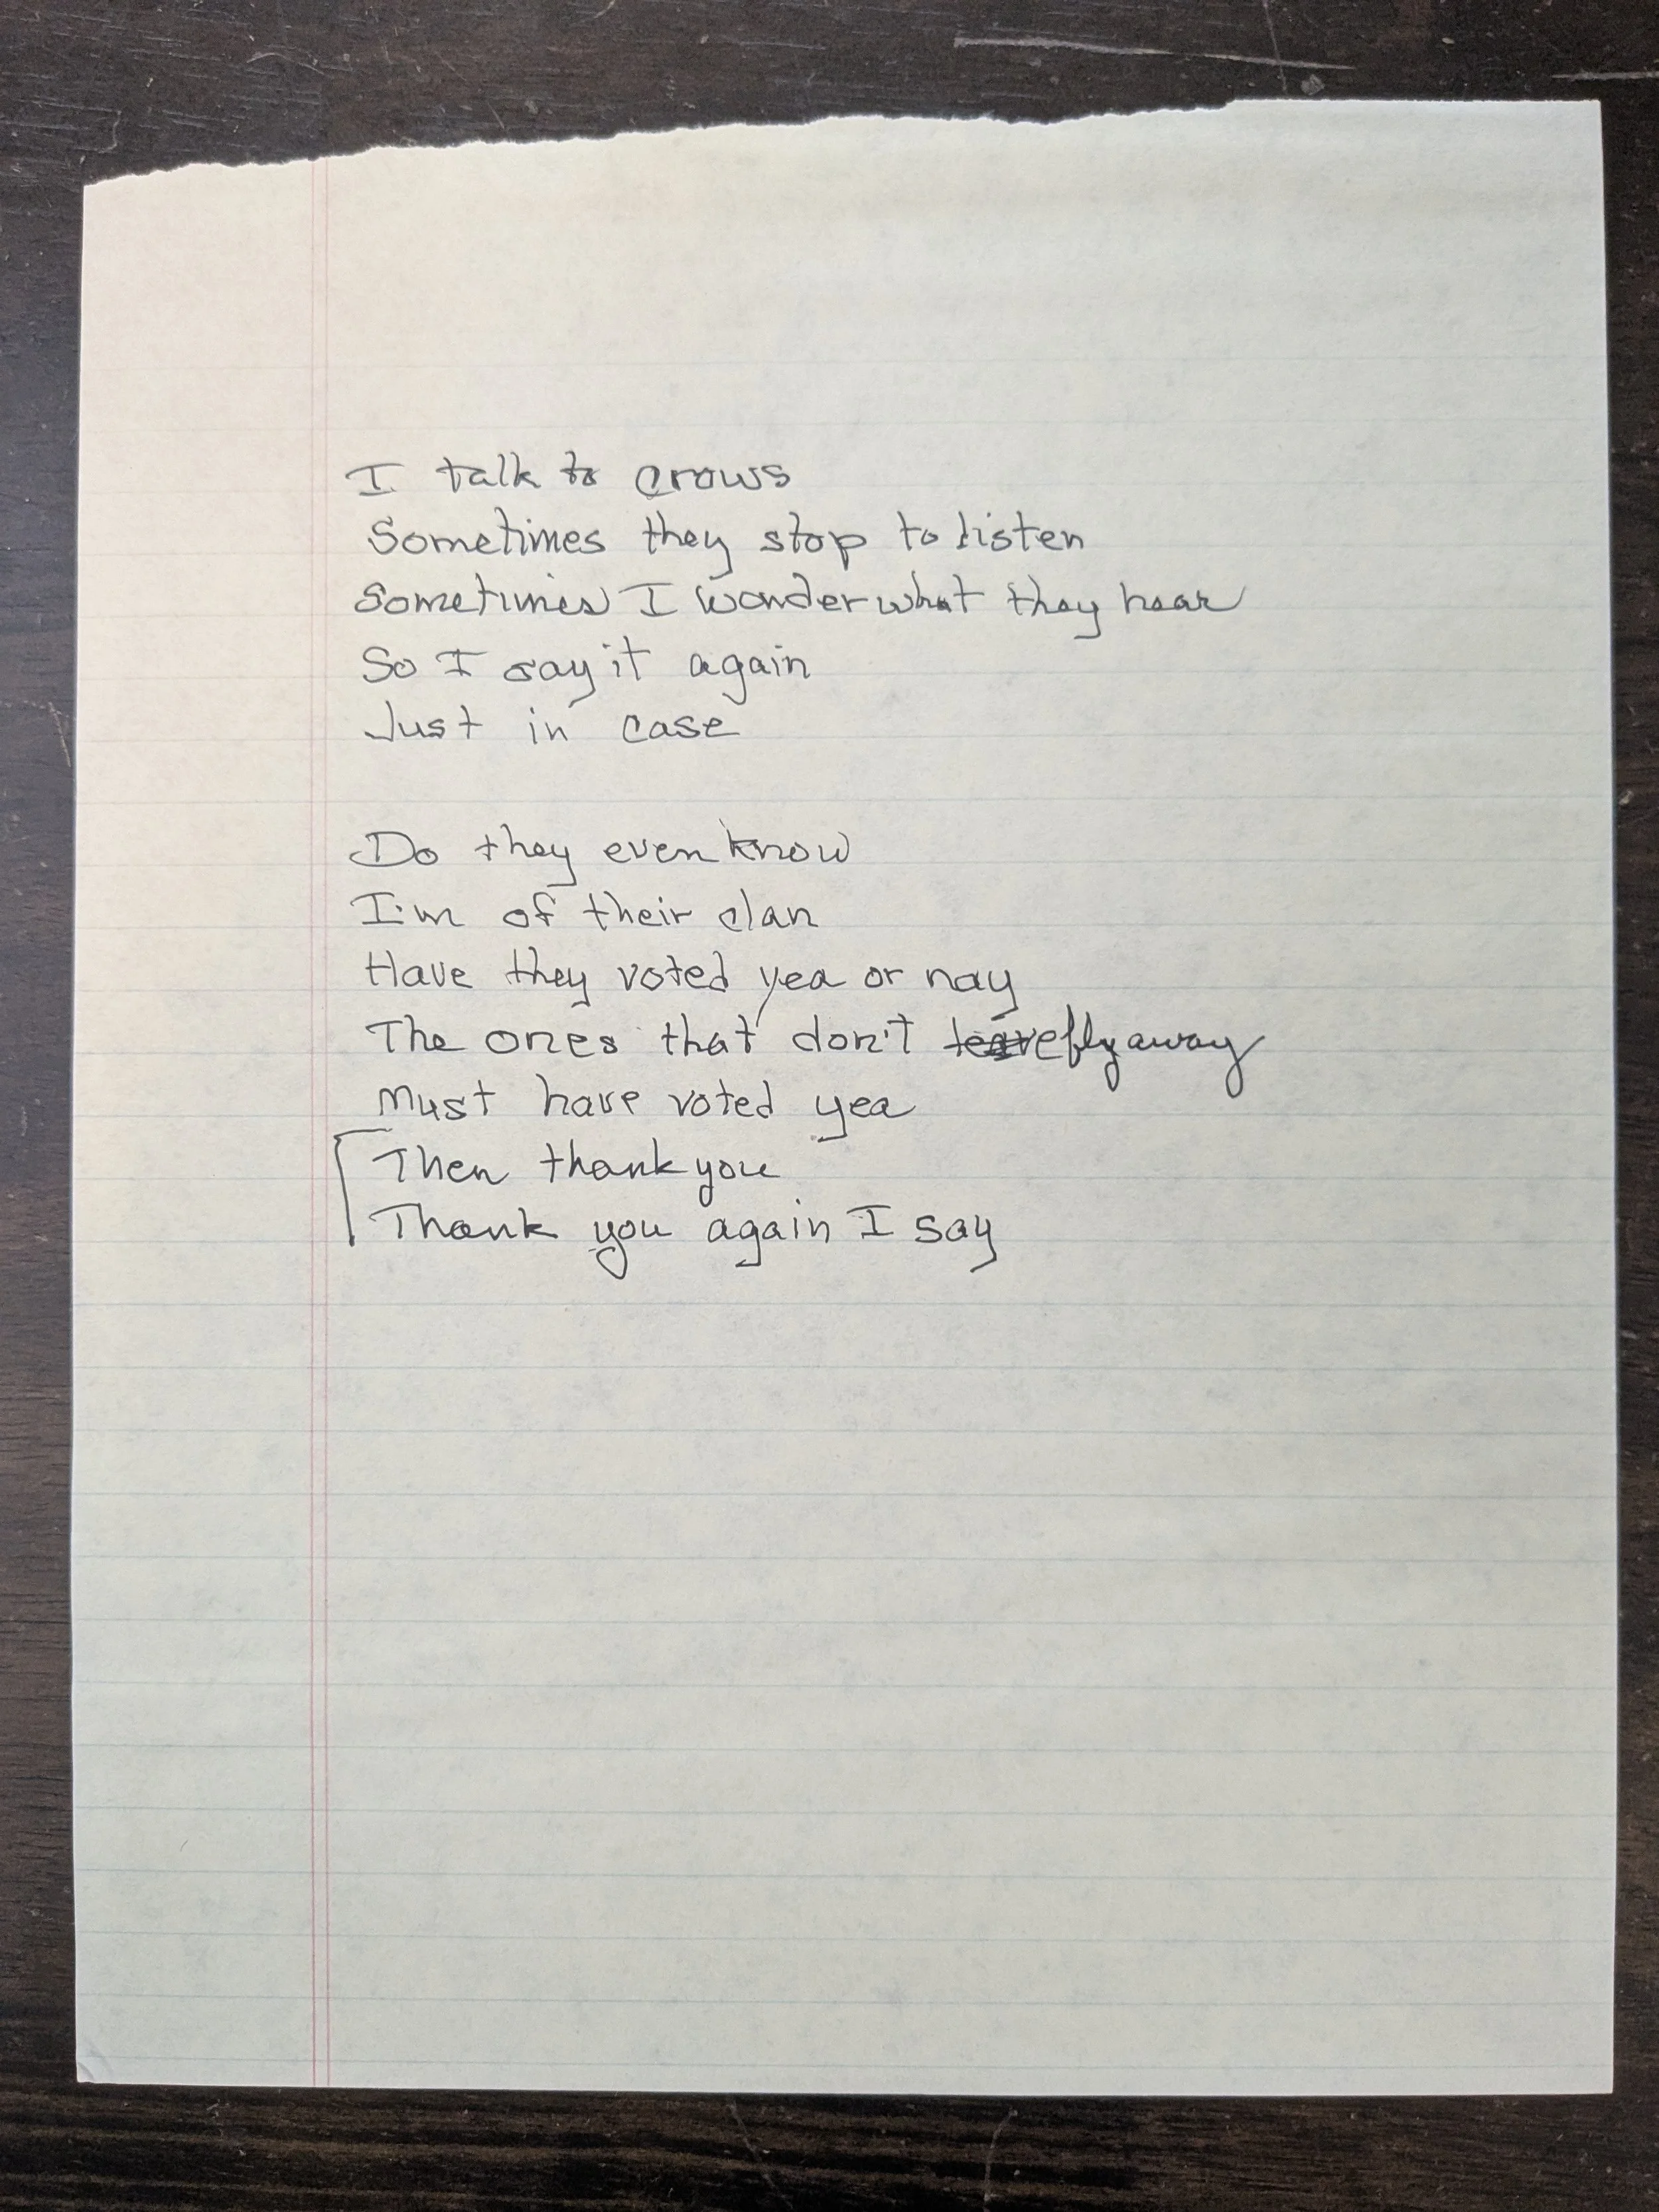 I talk to crows
Sometimes they stop to listen
Sometimes I wonder what they hear
So I say it again
Just in case
Do they even know
I'm of their clan
Have they voted yea or nay
The ones that don't leave fly away
Must have voted yea
Then thank you
Thank you again I say